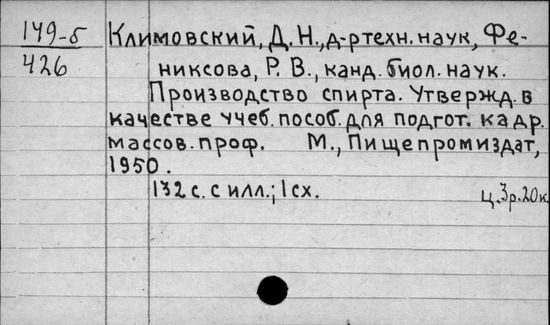 149-5
426
Климовский, Д. Н., д-р техн. наук, Фе-
никсова, Р. В., канд. биол. наук.
Производство спирта. Утвержд. в
качестве учеб. пособ. для подгот. кадр.
массов. проф. М., Пищепромиздат,
1950.
132 с. с илл.; 1 сх.
ц. 3р. 20к.